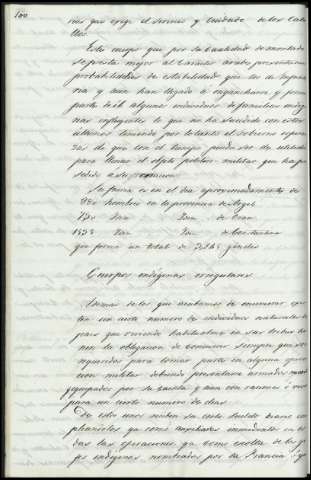 100
rias que exige el servicio y cuidado de los caba
llos.
Este cuerpo que por su cualidad de montado
se presta mejor al carácter árabe, presenta mas
probabilidades de estabilidad que los de Infante
ria y aun han llegado á engancharse y formar
parte de él algunos individuos de familias indíge
nas influyentes lo que no ha sucedido con estos
últimos teniendo por lo tanto el Gobierno esperan
zas de que con el tiempo puedan ser de utilidad
para llenar el objeto politico-militar que ha pre
sidido á su creacion.
Su fuerza es en el dia aproximadamente de
980 hombres en la provincia de Argel
Idn Idn de Oran
Idn Idn de Constantina
que forma un total de ginetes
Cuerpos indígenas irregulares
Ademas de los que acabamos de enumerar exis
ten un cierto numero de individuos naturales del
pais que viviendo habitualmente en sus tribus tie
nen la obligacion de reunirse siempre que son
requeridos para tomar parte en alguna opera
cion militar debiendo presentarse armados
y equipados por su cuenta y aun con raciones ó viveres
para un cierto numero de dias.
De estos unos reciben un corto sueldo diario em
pleándolos ya como auxiliares inmediatos en to
das las operaciones ya como escolta de los ge
fes indígenas nombrados por la Francia y